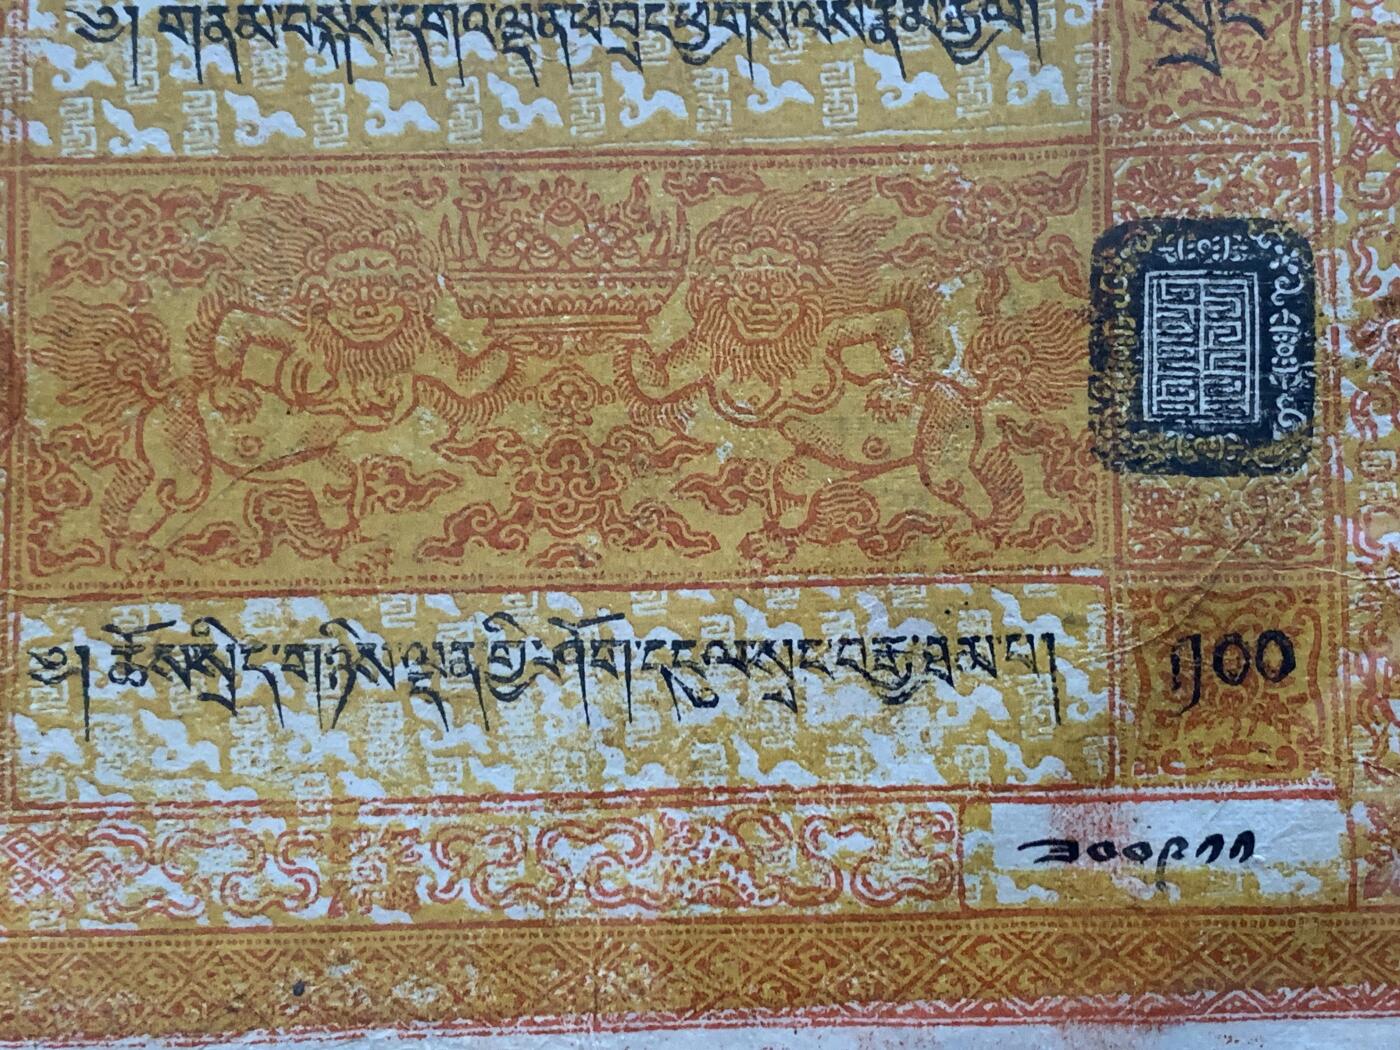 ༄། གནམ་བསྐོས་དགའ་ལྡན་ཕོ་བྲང་ཕྱོགས་ལས་རྣམ་རྒྱལ།
སྲང
༄། ཆོས་སྲིད་གཉིས་ལྡན་གྱི་ཤོག་དངུལ་སྲང་བརྒྱ་ཐམ་པ།
༡༠༠